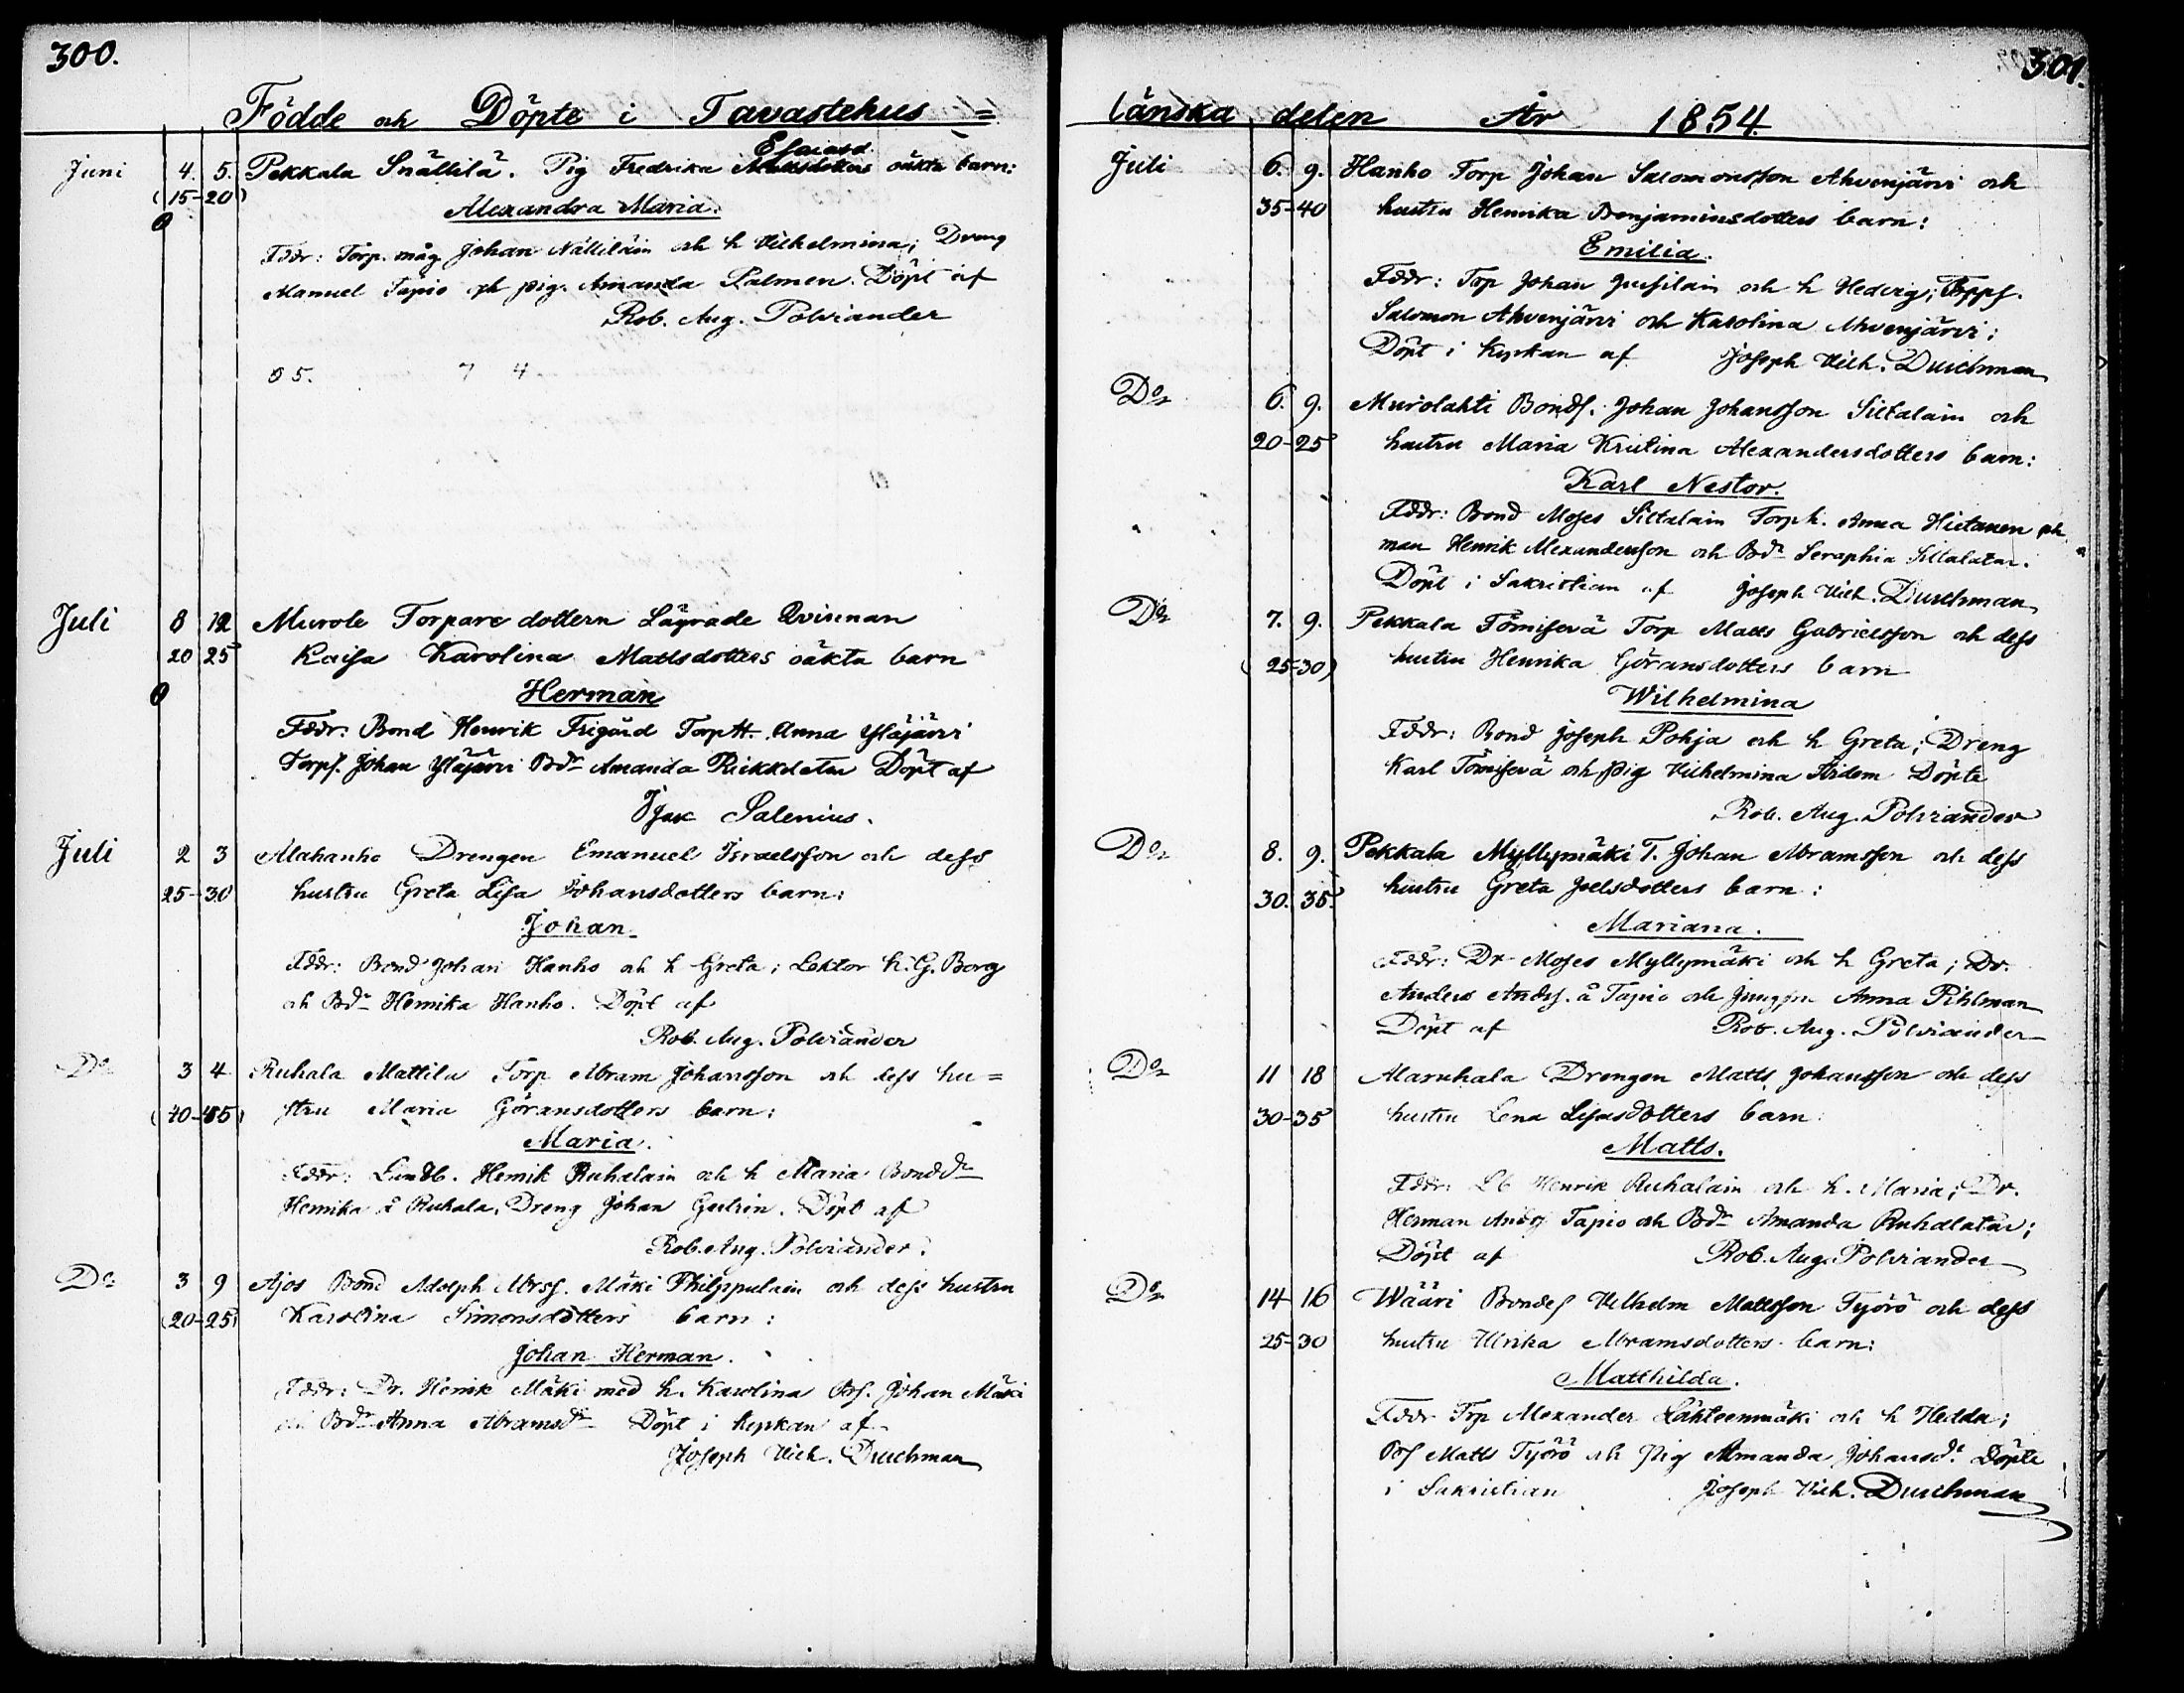 300.
Födde och Döpte i Tavastehus =
Juni 4. 5. Pekkala Snällilä. Pig Fredrika Esaiasd. oäkta barn:
(15-20)
Alexandra Maria.
Fddr: Torp. måg Johan Nälliläin och h Vilhelmina; Dreng
Manuel Tapio och pig. Amanda Palmen. Döpt af
Rob. Aug. Polviander
Juli 8 12 Murole Torpare dottern Lägrade Qvinnan
20 25 Kaisa Karolina Mattsdotters oäkta barn
Herman
Fddr: Bond Henrik Frigård Torp H. Anna Yläjärvi
Torps. Johan Yläjärvi Bdr Amanda Döpt af
Isak Salenius.
Juli 2 3 Alahanho Drengen Emanuel Israelsson och dess
25-30 hustru Greta Lisa Johansdotters barn:
Johan
Fddr: Bond Johan Hanho och h Greta; Lektor h. G. Borg
och Bdr Henrika Hanho. Döpt af
Rob. Aug. Polviander
Do 3 4 Ruhala Mattila Torp Abram Johansson och dess hu=
(40-45) stru Maria Göransdotters barn:
Maria.
Fddr: Lundb. Henrik Ruhalain och h Maria Bonddr
Henrika å Ruhala, Dreng Johan. Döpt af
Rob. Aug. Polviander.
Do 3 9 Ajos Bond Adolph Abrss. Mäki Philppulain och dess hustru
(20-25) Karolina Simonsdotters barn:
Johan Herman.
Fddr: Dr. Henrik Mäki med h. Karolina Bs. Johan Mäki
och Bdr Anna Abramsdr Döpt i kyrkan af
Joseph Vilh. Duchman
301.
länska delen År 1854.
Juli 6. 9. Hanho Torp Johan Salomonsson Ahvenjärvi och
35-40 hustru Henrika Benjaminsdotters barn:
Emilia.
Fddr: Torp Johan Jussilain och h Hedvig; Torps.
Salomon Ahvenjärvi och Karolina Ahvenjärvi;
Döpt i Kyrkan af Joseph Vilh. Duchman
Do 6. 9. Murolahti Bonds. Johan Johansson Siltalain och
20-25 hustru Maria Kristina Alexandersdotters barn:
Karl Nestor.
Fddr: Bond Moses Siltalain Torp h. Anna Hietanen och
man Henrik Alexandersson och Bdr Seraphia Siltalatar.
Döpt i Sakristian af Joseph Vilh. Duchman
Do 7. 9. Pekkala Törnisevä Torp Matts Gabrielsson och dess
(25-30) hustru Henrika Göransdotters barn
Wilhelmina
Fddr: Bond Joseph Pohja och h Greta; Dreng
Karl Törnisevä och pig Vilhelmina Döpte
Rob. Aug. Polviander
Do 8. 9. Pekkala Myllymäki T. Johan Abramsson och dess
30. 35. hustru Greta Joelsdotters barn:
Mariana.
Fddr: Dr Moses Myllymäki och h Greta; Dr.
Anders Andss. å Tapio och jungfru Anna Pihlman
Döpt af Rob. Aug. Polviander
Do 11 18 Alaruhala Drengen Matts Johansson och dess
30-35 hustru Lena Lisasdotters barn:
Matts.
Fddr: Lb Henrik Ruhalain och h. Maria; Dr.
Herman Andss Tapio och Bdr Amanda Ruhalatar;
Döpt af Rob. Aug. Polviander
Do 14 16 Wääri Bondes Vilhelm Mattsson Työrö och dess
25-30 hustru Ulrika Abramsdotters barn:
Matthilda.
Fddr Trp Alexander Lähteenmäki och h Hedda;
Bs Matts Työrö och Pig Amanda Johansdr. Döpte
i Sakristian Joseph Vilh. Duchman